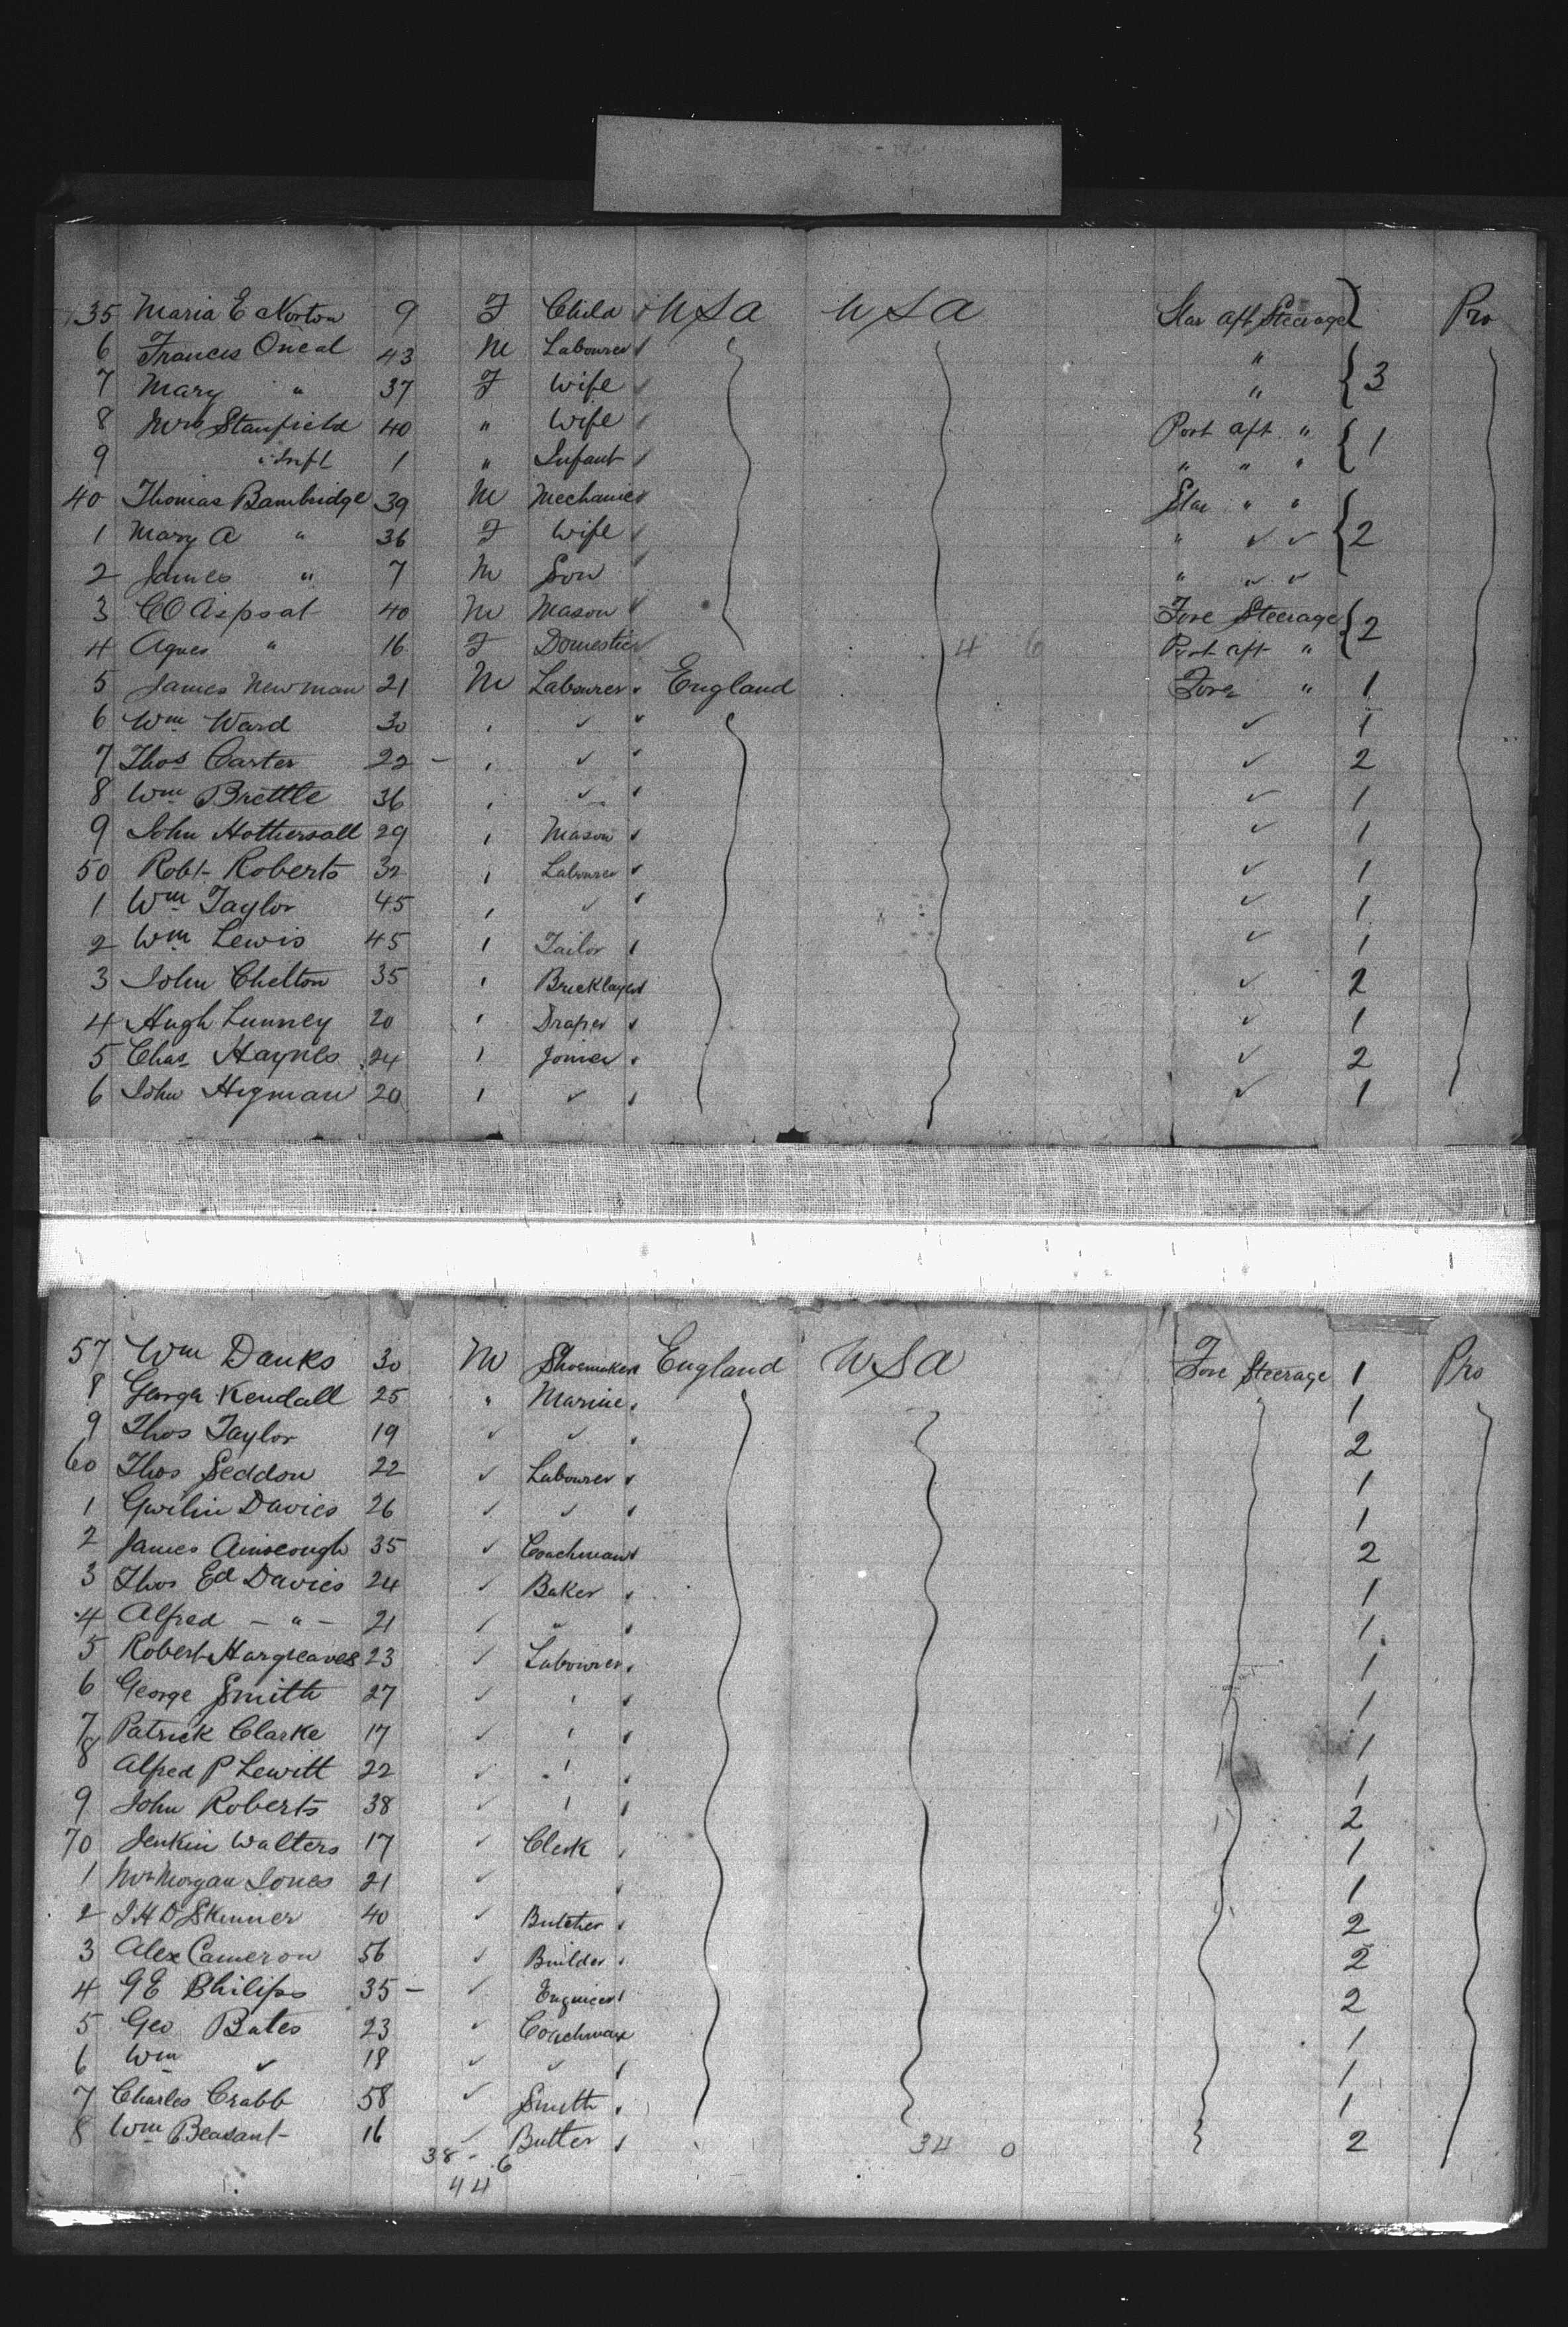 35 Maria E Norton 9 F Child USA USA Star aft Steerage Pro
6 Frances Oneal 43 M Labourer " 3
7 Mary " 37 F Wife "
8 Mrs Stanfield 40 " Wife Port aft " 1
9 " Inft 1 " Infant " " "
40 Thomas Bambridge 39 M Mechanic Star " " 2
1 Mary A " 36 F Wife " ✓ ✓
2 James " 7 M Son " ✓ ✓
3 CO 40 M Mason Fore Steerage 2
4 Agnes " 16 F Domestic 4 6 Port aft "
5 James Newman 21 M Labourer England Fore " 1
6 Wm Ward 30 ✓ ✓ 1
7 Thos Carter 22 – ✓ ✓ 2
8 Wm Brettle 36 ✓ ✓ 1
9 John Hothersall 29 Mason ✓ 1
50 Robt Roberts 32 Labourer ✓ 1
1 Wm Taylor 45 ✓ ✓ 1
2 Wm Lewis 45 Tailor ✓ 1
3 John Chelton 35 Bricklayer ✓ 2
4 Hugh Lunney 20 Draper ✓ 1
5 Chas Haynes 24 Joiner ✓ 2
6 John Higman 20 ✓ ✓ 1
57 Wm Danks 30 M Shoemaker England USA Fore Steerage 1 Pro
8 George Kendall 25 " Marine 1
9 Thos Taylor 19 ✓ ✓ 2
60 Thos Seddon 22 ✓ Labourer 1
1 Gwilim Davies 26 ✓ ✓ 1
2 James Ainscough 35 ✓ Coachman 2
3 Thos Ed Davies 24 ✓ Baker 1
4 Alfred – " – 21 ✓ " 1
5 Robert Hargreaves 23 ✓ Labourer 1
6 George Smith 27 ✓ 1
7 Patrick Clarke 17 ✓ 1
8 Alfred P Lewitt 22 ✓ 1
9 John Roberts 38 ✓ 2
70 Jenkin Walters 17 ✓ Clerk 1
1 Morgan Jones 21 ✓ 1
2 J H D Skinner 40 ✓ Butcher 2
3 Alex Cameron 56 ✓ Builder 2
4 G E Philips 35 – ✓ Engineer 2
5 Geo Bates 23 ✓ Coachman 1
6 Wm ✓ 18 ✓ ✓ 1
7 Charles Crabb 58 ✓ Smith 1
8 Wm Beasant 16 ✓ Butler 34 0 2
38 - 6
44